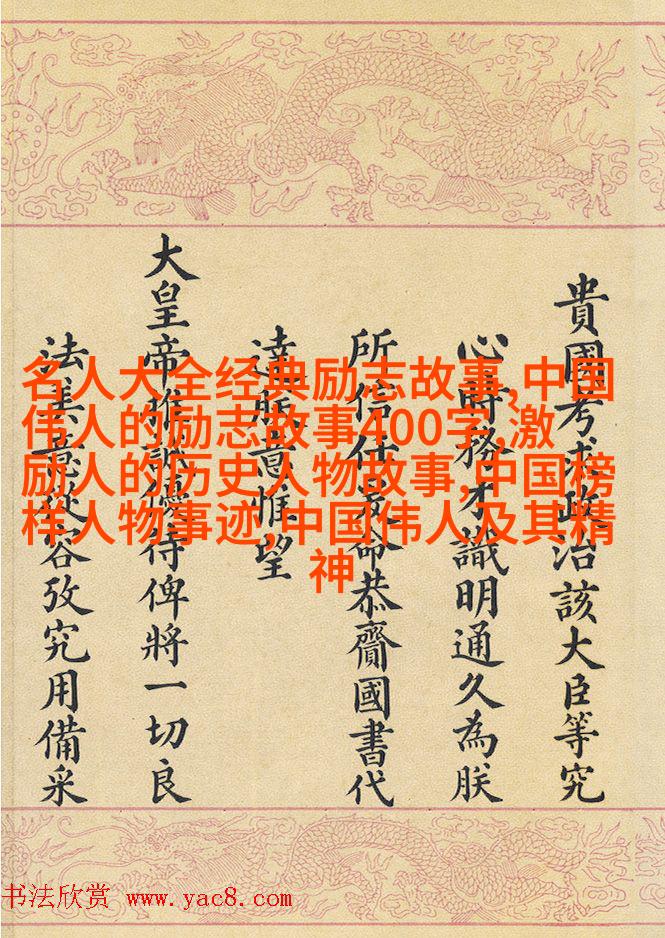 名人大全经典励志故事,中国
伟人的励志故事400字,激
励人的历史人物故事,中国榜
样人物事迹,中国伟人及其精
神
貴國考求政治該大臣等究
心時務才識明通久為朕
所信任爰命恭齎國書代
達朕意惟望
大皇帝推誠優待俾將一切良
法美意從容攷究用備采
书法欣赏 www.yac8.com